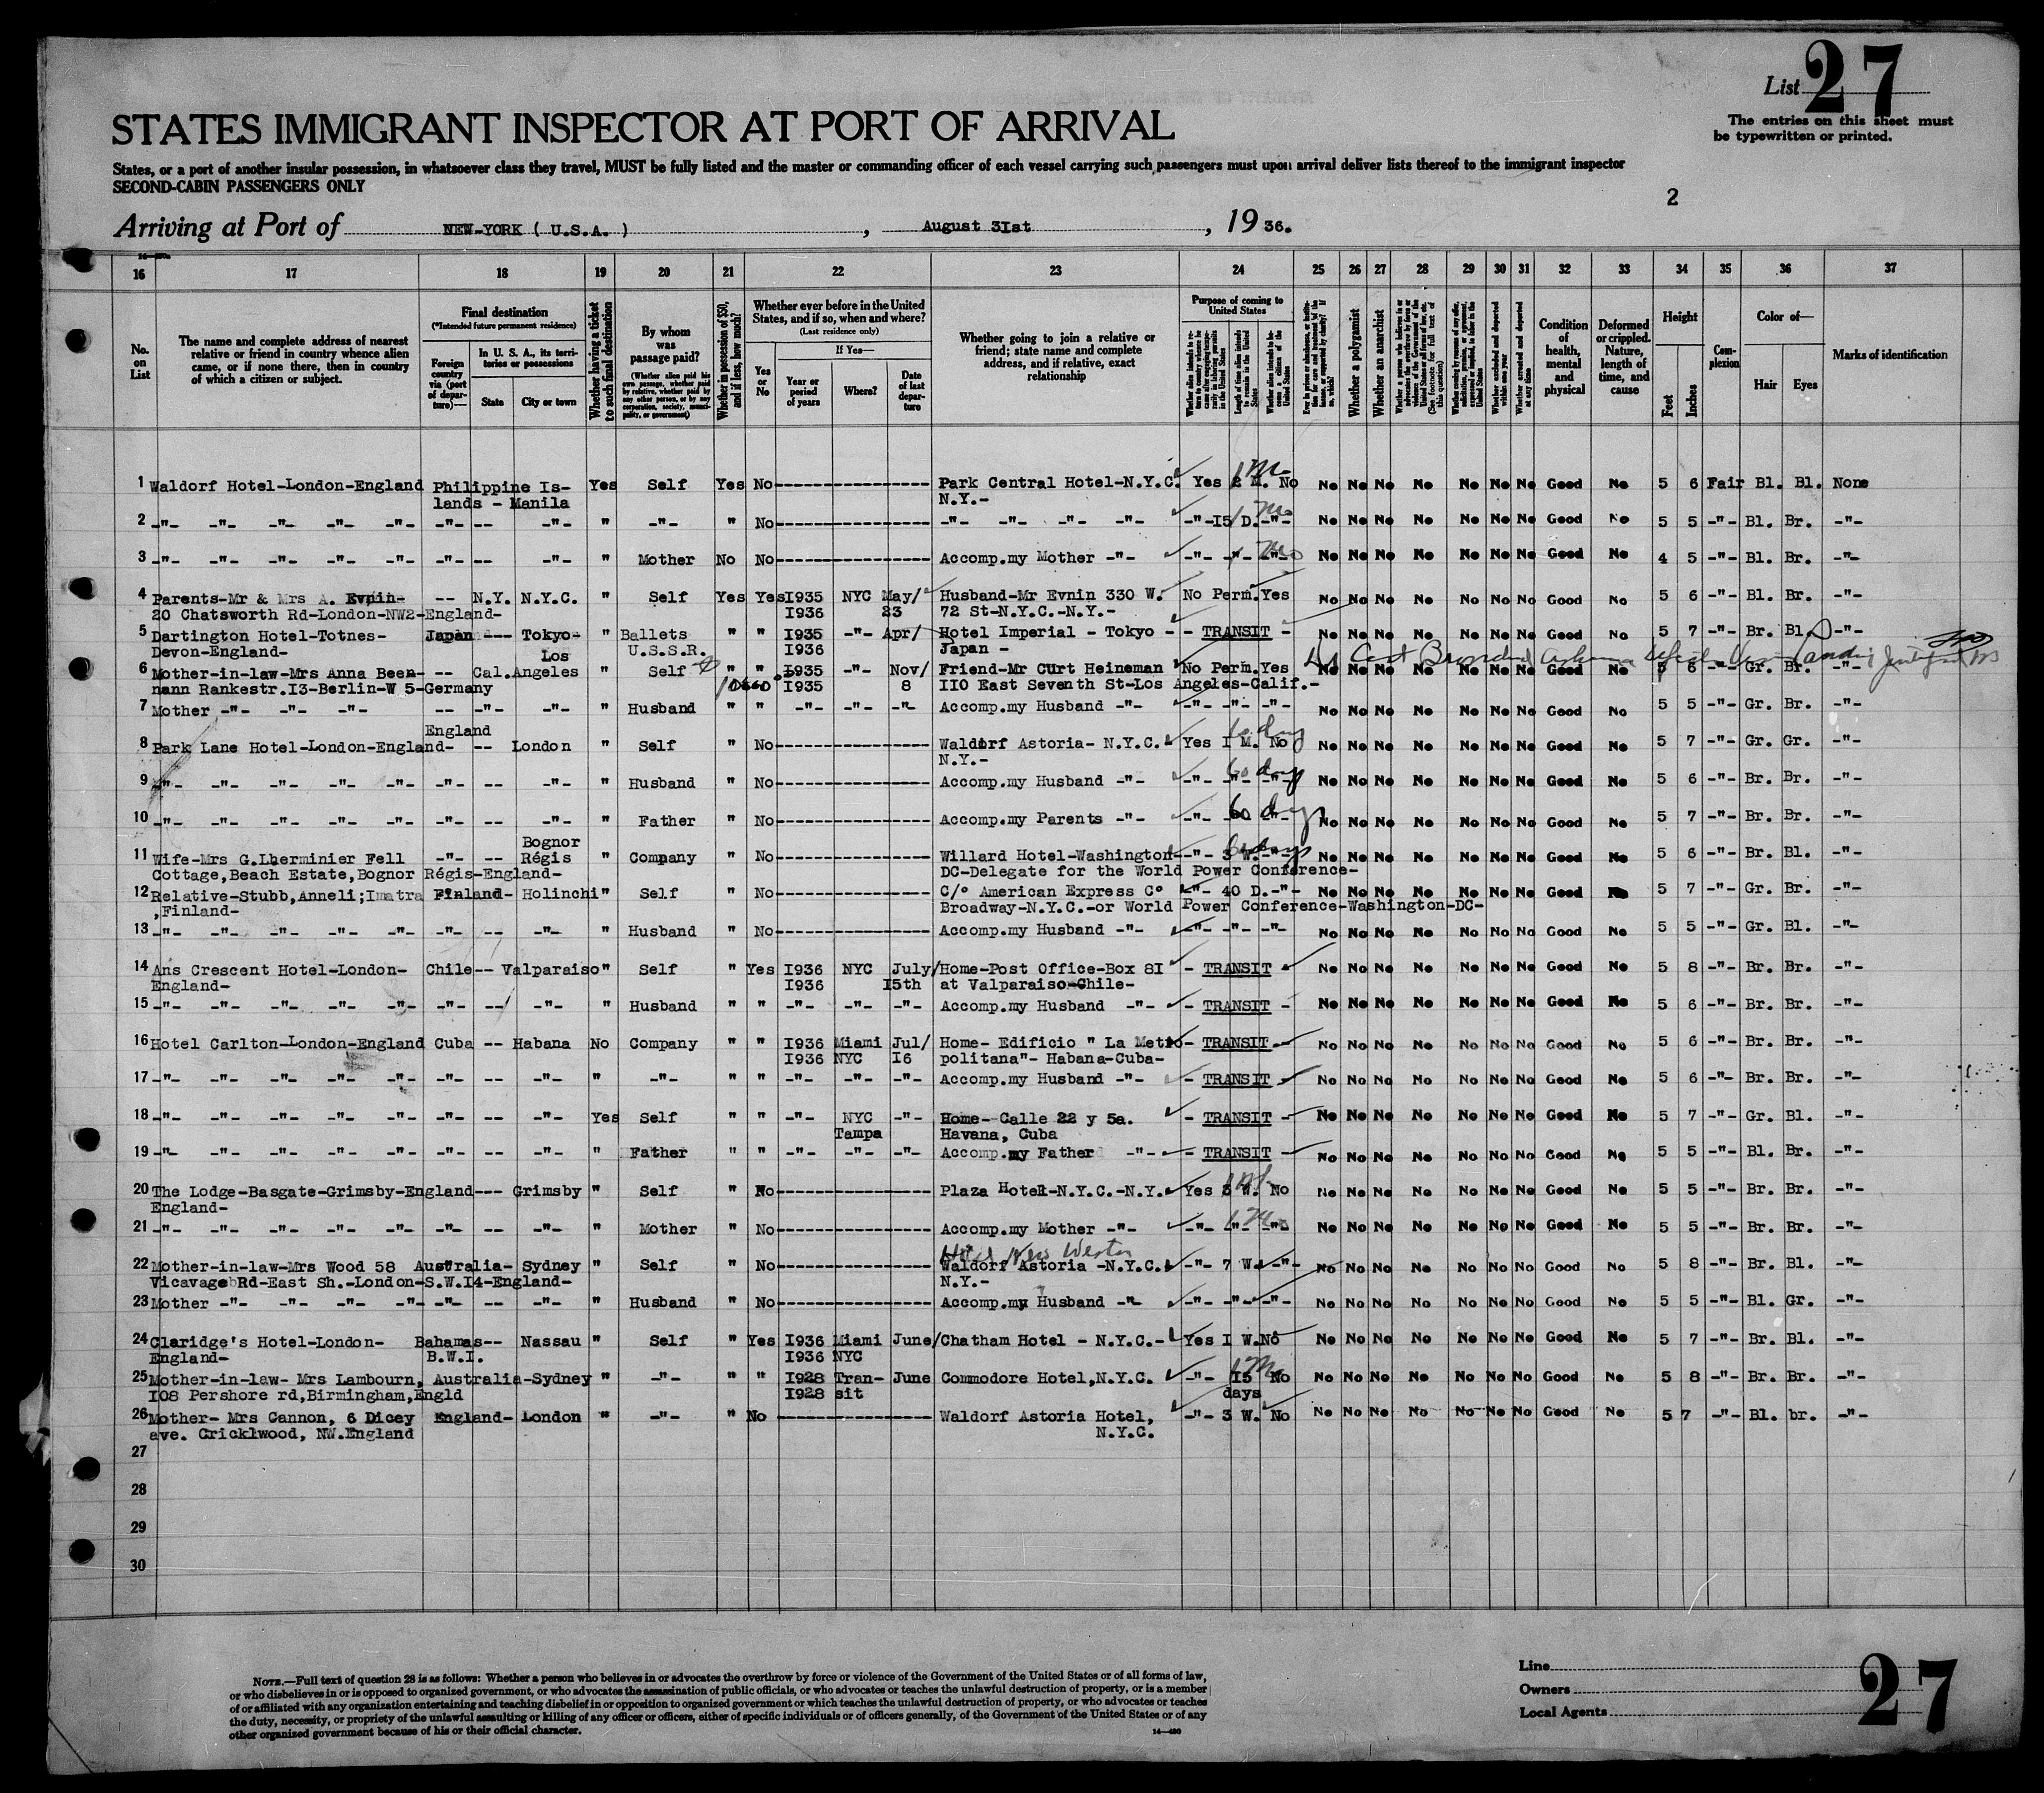 List 27
The entries on this sheet must
be typewritten or printed.
STATES IMMIGRANT INSPECTOR AT PORT OF ARRIVAL
States, or a port of another insular possession, in whatsoever class they travel, MUST be fully listed and the master or commanding officer of each vessel carrying such passengers must upon arrival deliver lists thereof to the immigrant inspector
SECOND-CABIN PASSENGERS ONLY
2
Arriving at Port of NEW-YORK ( U.S.A. ) , August 3Ist , 19 36.
16 17 18 19 20 21 22 23 24 25 26 27 28 29 30 31 32 33 34 35 36 37
No. on List
The name and complete address of nearest relative or friend in country whence alien came, or if none there, then in country of which a citizen or subject.
Final destination
(*Intended future permanent residence)
Foreign country via (port of departure)—
In U. S. A., its territories or possessions
State
City or town
Whether having a ticket to such final destination
By whom was passage paid?
(Whether alien paid his own passage, whether paid by relative, whether paid by any other person, or by any corporation, society, municipality, or government)
Whether in possession of $50, and if less, how much?
Whether ever before in the United States, and if so, when and where?
(Last residence only)
Yes or No
If Yes—
Year or period of years
Where?
Date of last departure
Whether going to join a relative or friend; state name and complete address, and if relative, exact relationship
Purpose of coming to United States
Length of time alien intends to remain in the United States
Whether alien intends to become a citizen of the United States
Whether a polygamist
Whether an anarchist
Whether arrested and deported at any time
Condition of health, mental and physical
Deformed or crippled. Nature, length of time, and cause
Height
Feet
Inches
Complexion
Color of—
Hair
Eyes
Marks of identification
1 Waldorf Hotel-London-England Philippine Is- Yes Self Yes No------------------ Park Central Hotel-N.Y.C. Yes 2 M. No No No No No No No No Good No 5 6 Fair Bl. Bl. None
lands - Manila N.Y.-
2 -"- -"- -"- -"- -"- -"- -- -"- " -"- " No------------------ -"- -"- -"- -"- -"-I5 D.-"- No No No No No No No Good No 5 5 -"- Bl. Br. -"-
3 -"- -"- -"- -"- -"- -"- -- -"- " Mother No No------------------ Accomp.my Mother -"- -"- -"- -"- No No No No No No No Good No 4 5 -"- Bl. Br. -"-
4 Parents-Mr & Mrs A. Evnin- -- N.Y. N.Y.C. " Self Yes Yes I935 NYC May/ Husband-Mr Evnin 330 W. No Perm.Yes No No No No No No No Good No 5 6 -"- Bl. Br. -"-
20 Chatsworth Rd-London-NW2-England- I936 23 72 St-N.Y.C.-N.Y.-
5 Dartington Hotel-Totnes- Japan --- Tokyo- " Ballets " " I935 -"- Apr/ Hotel Imperial - Tokyo - - TRANSIT - No No No No No No No Good No 5 7 -"- Br. Bl. -"-
Devon-England- U.S.S.R. I936 Japan -
6 Mother-in-law-Mrs Anna Been- -- Cal. Los Angeles " Self " " I935 -"- Nov/ Friend-Mr CUrt Heineman No Perm.Yes No No No No No No No Good No 5 6 -"- Gr. Br. -"-
nann Rankestr.I3-Berlin-W 5-Germany I935 8 II0 East Seventh St-Los Angeles-Calif.-
7 Mother -"- -"- -"- -- -"- -"- " Husband " " -"- -"- -"- Accomp.my Husband -"- -"- -"- -"- No No No No No No No Good No 5 5 -"- Gr. Br. -"-
England
8 Park Lane Hotel-London-England- -- London " Self " No------------------ Waldorf Astoria- N.Y.C. Yes I M. No No No No No No No No Good No 5 7 -"- Gr. Gr. -"-
N.Y.-
60 days
9 -"- -"- -"- -"- -"- -"- -- -"- " Husband " No------------------ Accomp.my Husband -"- -"- -"- -"- No No No No No No No Good No 5 6 -"- Br. Br. -"-
60 days
10 -"- -"- -"- -"- -"- -"- -- -"- " Father " No------------------ Accomp.my Parents -"- -"- -"- -"- No No No No No No No Good No 5 7 -"- Br. Br. -"-
Bognor
11 Wife-Mrs G.Lherminier Fell -"- -- Régis " Company " No------------------ Willard Hotel-Washington- -"- 3 W.-"- No No No No No No No Good No 5 6 -"- Br. Bl. -"-
Cottage,Beach Estate,Bognor Régis-England- DC-Delegate for the World Power Conference-
12 Relative-Stubb,Anneli;Imatra Finland- Holinchi " Self " No------------------ C/° American Express C° -"- 40 D.-"- No No No No No No No Good No 5 7 -"- Gr. Br. -"-
,Finland- Broadway-N.Y.C.-or World Power Conference-Washington-DC-
13 -"- -"- -"- -"- -"- -"- -- -"- " Husband " No------------------ Accomp.my Husband -"- -"- -"- -"- No No No No No No No Good No 5 5 -"- Gr. Bl. -"-
14 Ans Crescent Hotel-London- Chile-- Valparaiso " Self " Yes I936 NYC July/ Home-Post Office-Box 8I - TRANSIT No No No No No No No Good No 5 8 -"- Br. Br. -"-
England- I936 I5th at Valparaiso-Chile-
15 -"- -"- -"- -"- -"- -"- -- -"- " Husband " " -"- -"- -"- Accomp.my Husband -"- - TRANSIT - No No No No No No No Good No 5 6 -"- Br. Br. -"-
16 Hotel Carlton-London-England Cuba -- Habana No Company " " I936 Miami Jul/ Home- Edificio " La Metro- TRANSIT.- No No No No No No No Good No 5 6 -"- Br. Br. -"-
I936 NYC I6 politana"- Habana-Cuba-
17 -"- -"- -"- -"- -"- -"- -- -"- " -"- " " -"- -"- -"- Accomp.my Husband -"- - TRANSIT - No No No No No No No Good No 5 6 -"- Br. Br. -"-
18 -"- -"- -"- -"- -"- -"- -- -"- Yes Self " " -"- NYC -"- Home- Calle 22 y 5a. - TRANSIT - No No No No No No No Good No 5 7 -"- Gr. Bl. -"-
Tampa Havana, Cuba
19 -"- -"- -"- -"- -"- -"- -- -"- " Father " " -"- -"- -"- Accomp.my Father -"- - TRANSIT - No No No No No No No Good No 5 5 -"- Bl. Br. -"-
20 The Lodge-Basgate-Grimsby-England--- Grimsby " Self " No------------------ Plaza Hotel-N.Y.C.-N.Y. Yes 3 W. No No No No No No No No Good No 5 5 -"- Br. Br. -"-
England-
21 -"- -"- -"- -"- -"- -"- -- -"- " Mother " No------------------ Accomp.my Mother -"- -"- -"- -"- No No No No No No No Good No 5 5 -"- Br. Br. -"-
Hotel New Weston
22 Mother-in-law-Mrs Wood 58 Australia- Sydney " Self " No------------------ Waldorf Astoria -N.Y.C. -"- 7 W. -"- No No No No No No No Good No 5 8 -"- Br. Bl. -"-
Vicavage Rd-East Sh.-London-S.W.I4-England- N.Y.-
23 Mother -"- -"- -"- -"- -"- -- -"- " Husband " No------------------ Accomp.my Husband -"- -"- -"- -"- No No No No No No No Good No 5 5 -"- Bl. Gr. -"-
24 Claridge's Hotel-London- Bahamas-- Nassau " Self " Yes I936 Miami June/ Chatham Hotel - N.Y.C.- Yes I W.No No No No No No No No Good No 5 7 -"- Br. Bl. -"-
England- B.W.I. I936 NYC
25 Mother-in-law- Mrs Lambourn, Australia-Sydney " -"- " " I928 Tran- June Commodore Hotel,N.Y.C. -"- I5 No No No No No No No No Good No 5 8 -"- Br. Br. -"-
I08 Pershore rd,Birmingham,Engld I928 sit days
26 Mother- Mrs Cannon, 6 Dicey England- London " -"- " No ------------------ Waldorf Astoria Hotel, -"- 3 W. No No No No No No No No Good No 5 7 -"- Bl. br. -"-
ave. Cricklwood, NW.England N.Y.C.
27
28
29
30
NOTE.—Full text of question 28 is as follows: Whether a person who believes in or advocates the overthrow by force or violence of the Government of the United States or of all forms of law,
or who disbelieves in or is opposed to organized government, or who advocates the assassination of public officials, or who advocates or teaches the unlawful destruction of property, or is a member
of or affiliated with any organization entertaining and teaching disbelief in or opposition to organized government or which teaches the unlawful destruction of property, or who advocates or teaches
the duty, necessity, or propriety of the unlawful assaulting or killing of any officer or officers, either of specific individuals or of officers generally, of the Government of the United States or of any
other organized government because of his or their official character.
14—430
Line
Owners
Local Agents
27